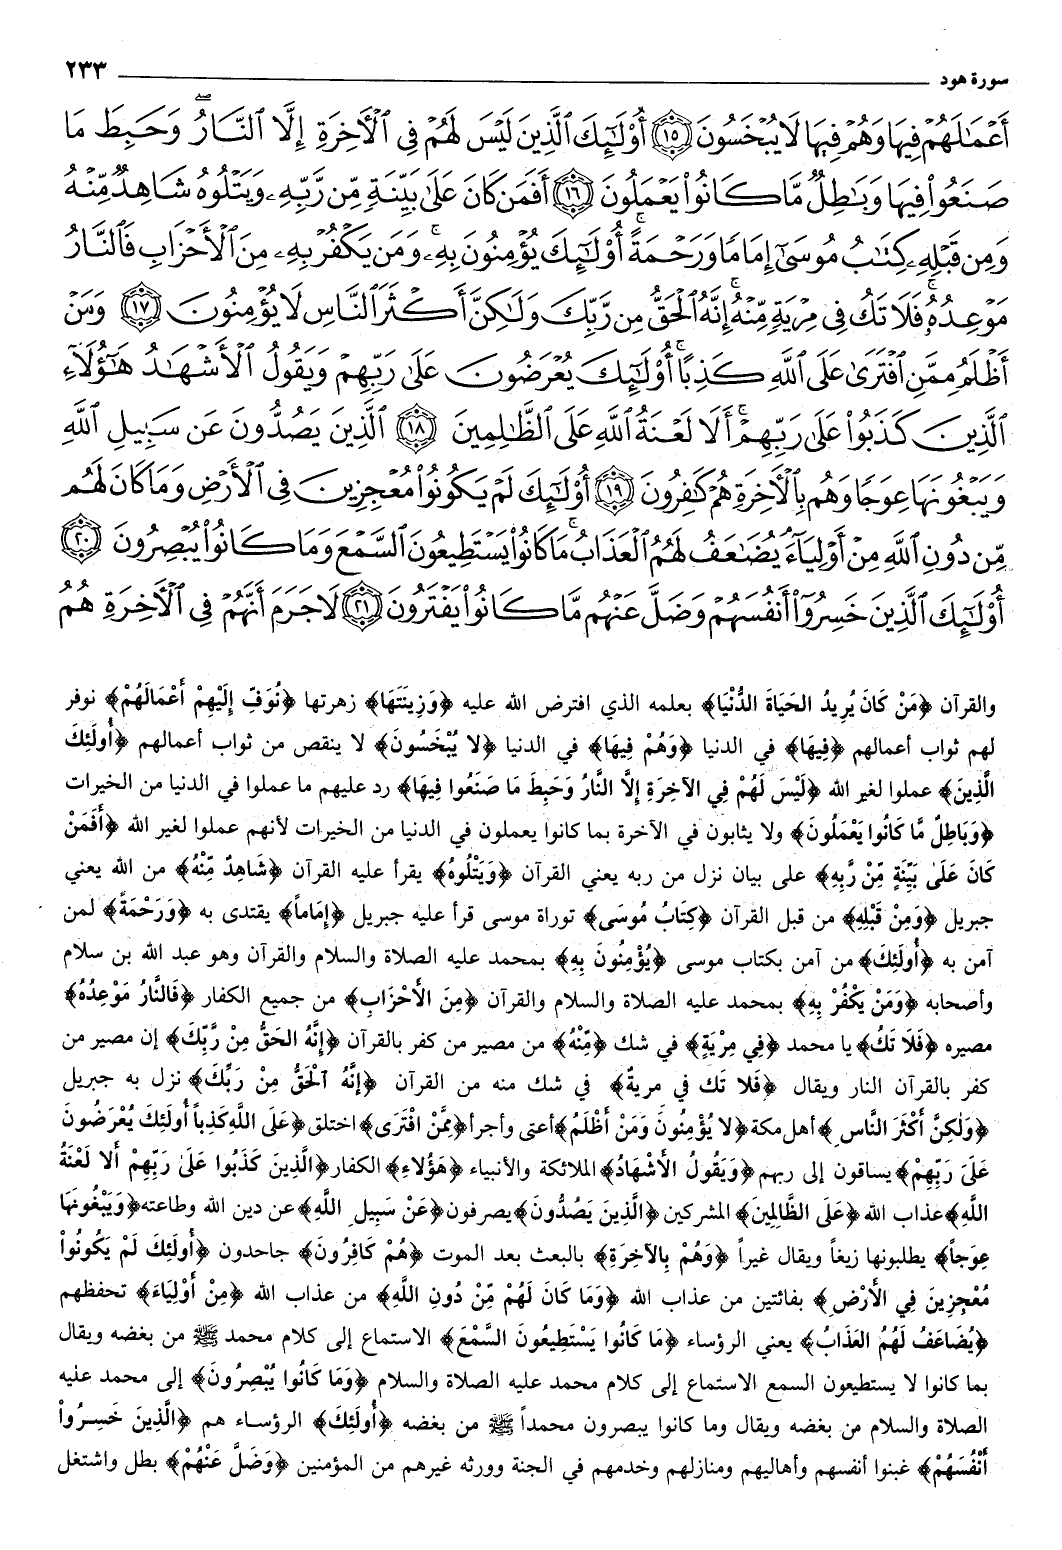 سورة هود ٢٣٣
أَعْمَٰلَهُمْ فِيهَا وَهُمْ فِيهَا لَا يُبْخَسُونَ ١٥ أُو۟لَٰٓئِكَ ٱلَّذِينَ لَيْسَ لَهُمْ فِى ٱلْأَخِرَةِ إِلَّا ٱلنَّارُ ۖ وَحَبِطَ مَا
صَنَعُوا۟ فِيهَا وَبَٰطِلٌ مَّا كَانُوا۟ يَعْمَلُونَ ١٦ أَفَمَن كَانَ عَلَىٰ بَيِّنَةٍ مِّن رَّبِّهِۦ وَيَتْلُوهُ شَاهِدٌ مِّنْهُ
وَمِن قَبْلِهِۦ كِتَٰبُ مُوسَىٰٓ إِمَامًا وَرَحْمَةً ۚ أُو۟لَٰٓئِكَ يُؤْمِنُونَ بِهِۦ ۚ وَمَن يَكْفُرْ بِهِۦ مِنَ ٱلْأَحْزَابِ فَٱلنَّارُ
مَوْعِدُهُۥ ۚ فَلَا تَكُ فِى مِرْيَةٍ مِّنْهُ ۚ إِنَّهُ ٱلْحَقُّ مِن رَّبِّكَ وَلَٰكِنَّ أَكْثَرَ ٱلنَّاسِ لَا يُؤْمِنُونَ ١٧ وَمَنْ
أَظْلَمُ مِمَّنِ ٱفْتَرَىٰ عَلَى ٱللَّهِ كَذِبًا ۚ أُو۟لَٰٓئِكَ يُعْرَضُونَ عَلَىٰ رَبِّهِمْ وَيَقُولُ ٱلْأَشْهَٰدُ هَٰٓؤُلَآءِ
ٱلَّذِينَ كَذَبُوا۟ عَلَىٰ رَبِّهِمْ ۚ أَلَا لَعْنَةُ ٱللَّهِ عَلَى ٱلظَّٰلِمِينَ ١٨ ٱلَّذِينَ يَصُدُّونَ عَن سَبِيلِ ٱللَّهِ
وَيَبْغُونَهَا عِوَجًا وَهُم بِٱلْأَخِرَةِ هُمْ كَٰفِرُونَ ١٩ أُو۟لَٰٓئِكَ لَمْ يَكُونُوا۟ مُعْجِزِينَ فِى ٱلْأَرْضِ وَمَا كَانَ لَهُم
مِّن دُونِ ٱللَّهِ مِنْ أَوْلِيَآءَ ۘ يُضَٰعَفُ لَهُمُ ٱلْعَذَابُ ۚ مَا كَانُوا۟ يَسْتَطِيعُونَ ٱلسَّمْعَ وَمَا كَانُوا۟ يُبْصِرُونَ ٢٠
أُو۟لَٰٓئِكَ ٱلَّذِينَ خَسِرُوٓا۟ أَنفُسَهُمْ وَضَلَّ عَنْهُم مَّا كَانُوا۟ يَفْتَرُونَ ٢١ لَا جَرَمَ أَنَّهُمْ فِى ٱلْأَخِرَةِ هُمُ
والقرآن ﴿مَنْ كَانَ يُرِيدُ الحَيَاةَ الدُّنْيَا﴾ بعلمه الذي افترض الله عليه ﴿وَزِينَتَهَا﴾ زهرتها ﴿نُوَفِّ إِلَيْهِمْ أَعْمَالَهُمْ﴾ نوفر
لهم ثواب أعمالهم ﴿فِيهَا﴾ في الدنيا ﴿وَهُمْ فِيهَا﴾ في الدنيا ﴿لا يُبْخَسُونَ﴾ لا ينقص من ثواب أعمالهم ﴿أُولَئِكَ
الَّذِينَ﴾ عملوا لغير الله ﴿لَيْسَ لَهُمْ فِي الآخِرَةِ إِلَّا النَّارُ وَحَبِطَ مَا صَنَعُوا فِيهَا﴾ رد عليهم ما عملوا في الدنيا من الخيرات
﴿وَبَاطِلٌ مَّا كَانُوا يَعْمَلُونَ﴾ ولا يثابون في الآخرة بما كانوا يعملون في الدنيا من الخيرات لأنهم عملوا لغير الله ﴿أَفَمَنْ
كَانَ عَلَىٰ بَيِّنَةٍ مِّنْ رَّبِّهِ﴾ على بيان نزل من ربه يعني القرآن ﴿وَيَتْلُوهُ﴾ يقرأ عليه القرآن ﴿شَاهِدٌ مِّنْهُ﴾ من الله يعني
جبريل ﴿وَمِنْ قَبْلِهِ﴾ من قبل القرآن ﴿كِتَابُ مُوسَى﴾ توراة موسى قرأ عليه جبريل ﴿إِمَاماً﴾ يقتدى به ﴿وَرَحْمَةً﴾ لمن
آمن به ﴿أُولَئِكَ﴾ من آمن بكتاب موسى ﴿يُؤْمِنُونَ بِهِ﴾ بمحمد عليه الصلاة والسلام والقرآن وهو عبد الله بن سلام
وأصحابه ﴿وَمَنْ يَكْفُرْ بِهِ﴾ بمحمد عليه الصلاة والسلام والقرآن ﴿مِنَ الأَحْزَابِ﴾ من جميع الكفار ﴿فَالنَّارُ مَوْعِدُهُ﴾
مصيره ﴿فَلَا تَكُ﴾ يا محمد ﴿فِي مِرْيَةٍ﴾ في شك ﴿مِّنْهُ﴾ من مصير من كفر بالقرآن ﴿إِنَّهُ الحَقُّ مِنْ رَّبِّكَ﴾ إن مصير من
كفر بالقرآن النار ويقال ﴿فَلَا تَك في مريةٌ﴾ في شك منه من القرآن ﴿إِنَّهُ ٱلْحَقُّ مِنْ رَبِّكَ﴾ نزل به جبريل
﴿وَلَٰكِنَّ أَكْثَرَ النَّاسِ﴾ أهل مكة ﴿لا يُؤْمِنُونَ وَمَنْ أَظْلَمُ﴾ أعتى وأجرأ ﴿مِمَّنْ افْتَرَى﴾ اختلق ﴿عَلَى اللَّهِ كَذِباً أُولَئِكَ يُعْرَضُونَ
عَلَىٰ رَبِّهِمْ﴾ يساقون إلى ربهم ﴿وَيَقُولُ الأَشْهَادُ﴾ الملائكة والأنبياء ﴿هَؤُلاءِ﴾ الكفار ﴿الَّذِينَ كَذَبُوا عَلَى رَبِّهِمْ أَلا لَعْنَةُ
اللَّهِ﴾ عذاب الله ﴿عَلَى الظَّالِمِينَ﴾ المشركين ﴿الَّذِينَ يَصُدُّونَ﴾ يصرفون ﴿عَنْ سَبِيلِ اللَّهِ﴾ عن دين الله وطاعته ﴿وَيَبْغُونَهَا
عِوَجاً﴾ يطلبونها زيغاً ويقال غيراً ﴿وَهُمْ بِالآخِرَةِ﴾ بالبعث بعد الموت ﴿هُمْ كَافِرُونَ﴾ جاحدون ﴿أُولَئِكَ لَمْ يَكُونُواْ
مُعْجِزِينَ فِي الأَرْضِ﴾ بفائتين من عذاب الله ﴿وَمَا كَانَ لَهُمْ مِّنْ دُونِ اللَّهِ﴾ من عذاب الله ﴿مِنْ أَوْلِيَاءَ﴾ تحفظهم
﴿يُضَاعَفُ لَهُمُ العَذَابُ﴾ يعني الرؤساء ﴿مَا كَانُوا يَسْتَطِيعُونَ السَّمْعَ﴾ الاستماع إلى كلام محمد ﷺ من بغضه ويقال
بما كانوا لا يستطيعون السمع الاستماع إلى كلام محمد عليه الصلاة والسلام ﴿وَمَا كَانُوا يُبْصِرُونَ﴾ إلى محمد عليه
الصلاة والسلام من بغضه ويقال وما كانوا يبصرون محمداً ﷺ من بغضه ﴿أُولَئِكَ﴾ الرؤساء هم ﴿الَّذِينَ خَسِرُواْ
أَنْفُسَهُمْ﴾ غبنوا أنفسهم وأهاليهم ومنازلهم وخدمهم في الجنة وورثه غيرهم من المؤمنين ﴿وَضَلَّ عَنْهُمْ﴾ بطل واشتغل